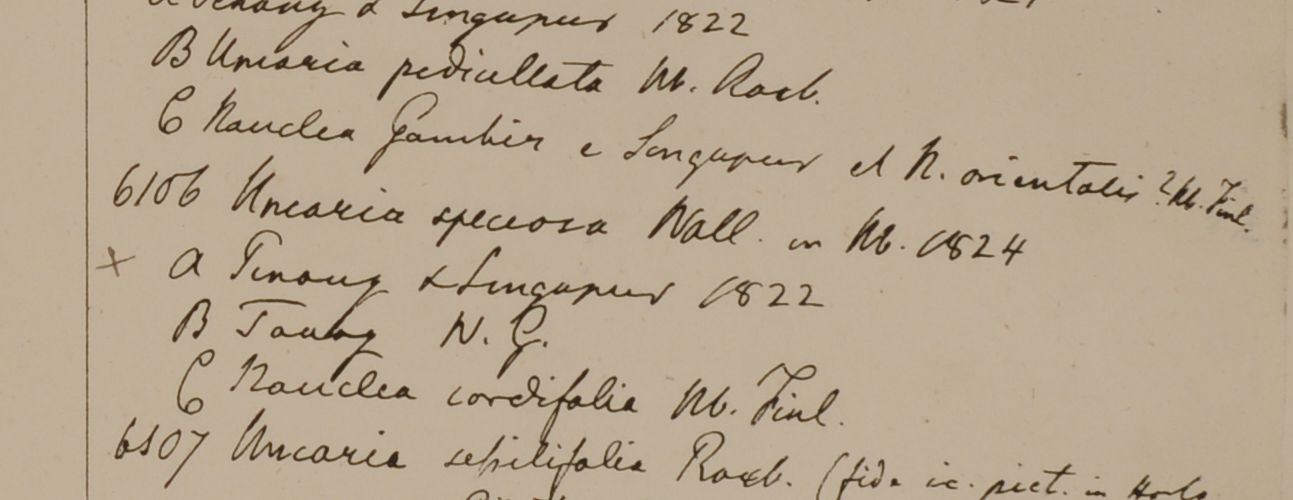 A Penang & Singapur 1822
B Uncaria pedicellata Hb. Roxb.
C Nauclea Gambir e Singapur et N. orientalis? Hb. Finl.
6106 Uncaria speciosa Wall. in Hb. 1824
× A Pinang & Singapur 1822
B Tavoy W. G.
C Nauclea cordifolia Hb. Finl.
6107 Uncaria sessilifolia Roxb. (fide ic. pict. in Horto